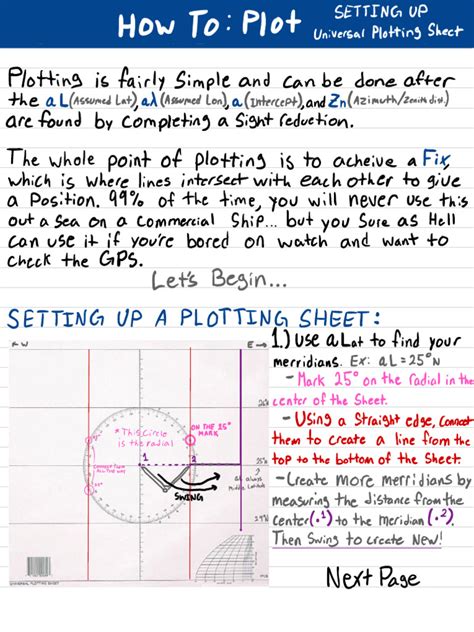 How To: Plot
SETTING UP
Universal Plotting Sheet
Plotting is fairly Simple and can be done after
the aL (Assumed Lat), aλ (Assumed Lon), a (Intercept), and Zn (Azimuth/Zenith dist.)
are found by Completing a Sight reduction.
The whole point of plotting is to acheive a Fix,
which is where lines intersect with each other to give
a Position. 99% of the time, you will never use this
out a Sea on a Commercial Ship... but you Sure as Hell
can use it if you're bored on watch and want to
check the GPS.
Let's Begin...
SETTING UP A PLOTTING SHEET:
W
E →
1.) Use aLat to find your
merridians. Ex: aL = 25°N
- Mark 25° on the radial in the
center of the Sheet.
- Using a Straight edge, Connect
them to create a line from the
top to the bottom of the Sheet.
- Create more merridians by
measuring the distance from the
center (•1) to the meridian (•2).
Then Swing to create New!
*This Circle
is the radial
ON THE 25°
MARK
1
2
CONNECT THEM
ALL THE WAY
SWING
always
Middle Latitude
UNIVERSAL PLOTTING SHEET
Next Page